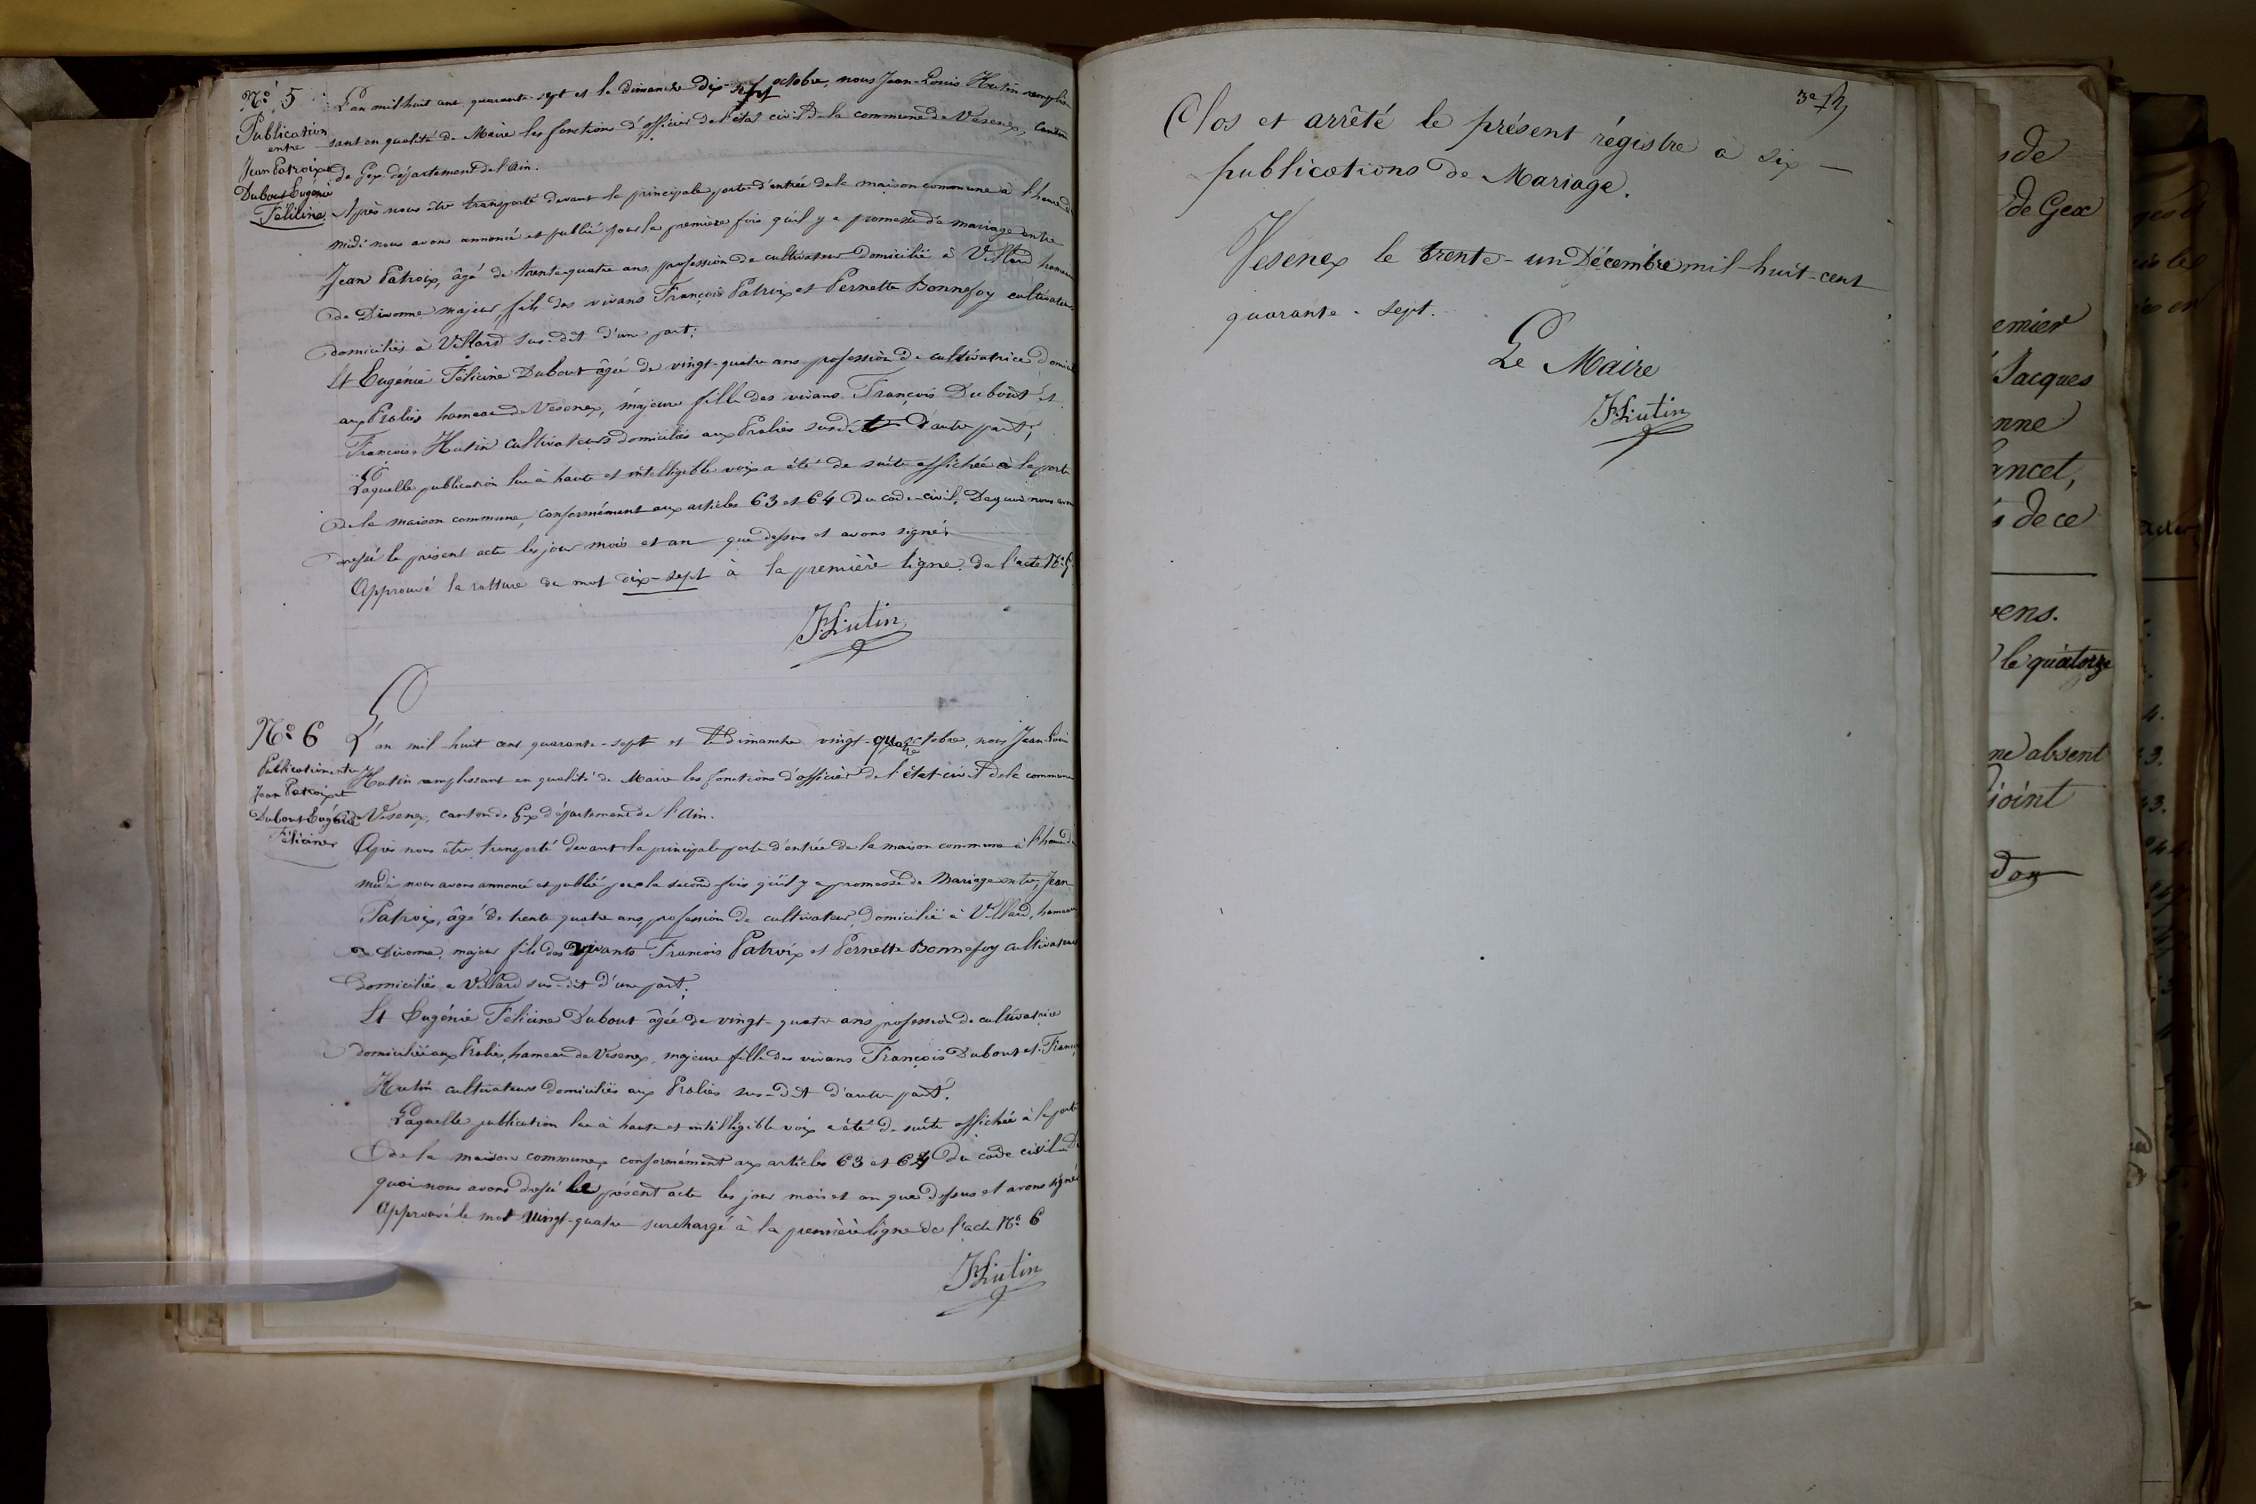 N° 5
Publication
entre
Jean Patroix et
Dubout Eugénie
Félicine
L'an mil huit cent quarante-sept et le dimanche dix-sept octobre, nous Jean-Louis Hutin remplis-
sant en qualité de Maire les fonctions d'officier de l'état civil de la commune de Vesenex, canton
de Gex département de l'Ain.
Après nous être transporté devant la principale porte d'entrée de la maison commune à l'heure de
midi nous avons annoncé et publié pour la première fois qu'il y a promesse de mariage entre
Jean Patroix, âgé de trente-quatre ans, profession de cultivateur domicilié à Villard hameau
de Divonne, majeur, fils des vivans François Patroix et Pernette Bonnefoy cultivateurs
domiciliés à Villard sus-dit d'une part;
Et Eugénie Félicine Dubout âgée de vingt-quatre ans profession de cultivatrice domicil
aux Pralies hameau de Vesenex, majeure fille des vivans François Dubout et
Françoise Hutin cultivateurs domiciliés aux Pralies susdit d'autre part;
Laquelle publication lue à haute et intelligible voix a été de suite affichée à la porte
de la maison commune, conformément aux articles 63 et 64 du code-civil. De quoi nous avons
dressé le présent acte les jour mois et an que dessus et avons signé.
Approuvé la rature du mot dix-sept à la première ligne de l'acte N° 5
JLHutin
N° 6
Publication entre
Jean Patroix et
Dubout Eugénie
Félicine
L'an mil huit cent quarante-sept et le Dimanche vingt-quatre octobre, nous Jean Louis
Hutin remplissant en qualité de Maire les fonctions d'officier de l'état-civil de la commune
de Vesenex, canton de Gex département de l'Ain.
Après nous être transporté devant la principale porte d'entrée de la maison commune à l'heure de
midi nous avons annoncé et publié pour la seconde fois qu'il y a promesse de Mariage entre Jean
Patroix, âgé de trente quatre ans, profession de cultivateur domicilié à Villard, hameau
de Divonne, majeur fils des vivants François Patroix et Pernette Bonnefoy cultivateurs
domiciliés à Villard sus-dit d'une part;
Et Eugénie Félicine Dubout âgée de vingt-quatre ans profession de cultivatrice
domiciliée aux Pralies, hameau de Vesenex, majeure fille des vivans François Dubout et Franç
Hutin cultivateurs domiciliés aux Pralies sus-dit d'autre part.
Laquelle publication lue à haute et intelligible voix a été de suite affichée à la porte
de la maison commune, conformément aux articles 63 et 64 du code civil. De
quoi nous avons dressé le présent acte les jour mois et an que dessus et avons signé
Approuvé le mot vingt-quatre surchargé à la première ligne de l'acte N° 6
JLHutin
Clos et arrêté le présent régistre à six
publications de Mariage.
Vesenex le trente-un Décembre mil-huit-cent
quarante-sept.
Le Maire
JLHutin
de
de Gex
emier
Jacques
nne
ancet,
de ce
vens.
le quatorze
ne absent
joint